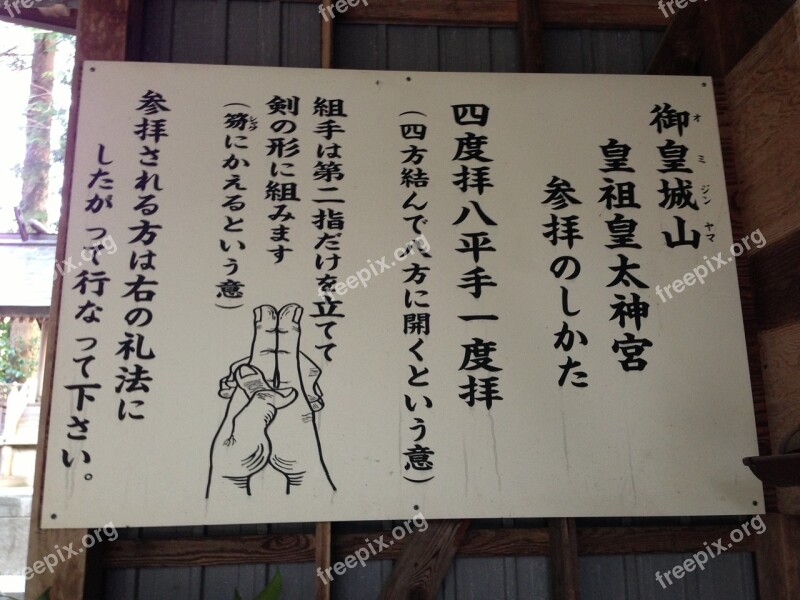 御皇城山
オミジンヤマ
皇祖皇太神宮
参拝のしかた
四度拝八平手一度拝
(四方結んで八方に開くという意)
組手は第二指だけを立てて
剣の形に組みます
(笏にかえるという意)
シャク
参拝される方は右の礼法に
したがって行なって下さい。
freepix.org